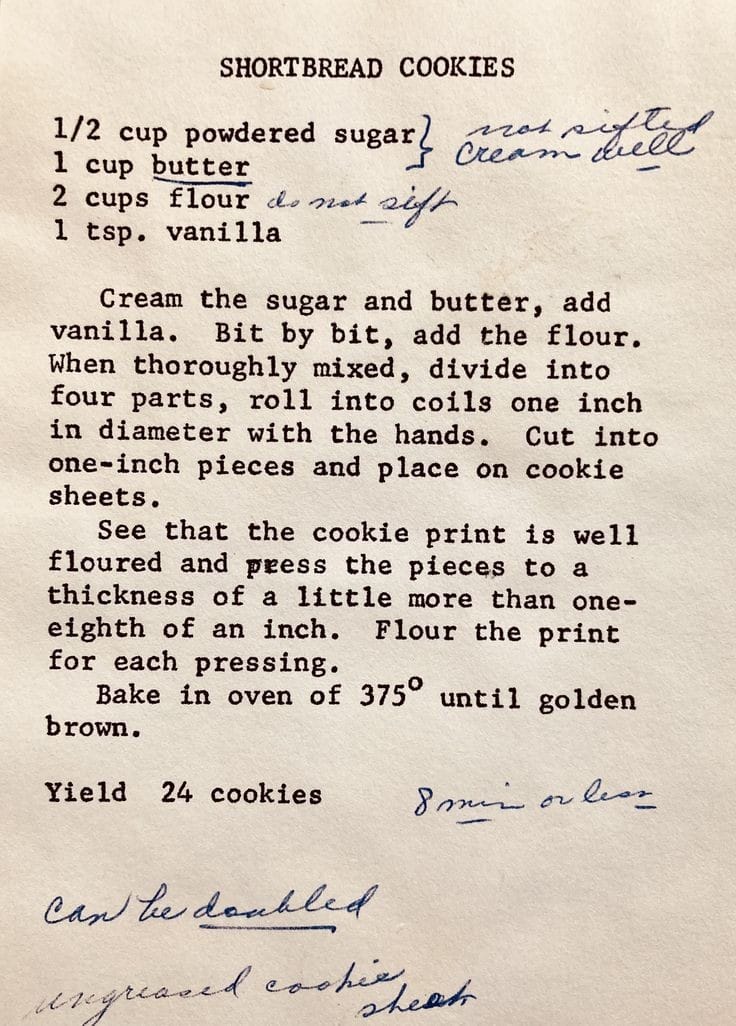 SHORTBREAD COOKIES
1/2 cup powdered sugar} not sifted
cream well
1 cup butter
2 cups flour do not sift
1 tsp. vanilla
Cream the sugar and butter, add
vanilla. Bit by bit, add the flour.
When thoroughly mixed, divide into
four parts, roll into coils one inch
in diameter with the hands. Cut into
one-inch pieces and place on cookie
sheets.
See that the cookie print is well
floured and press the pieces to a
thickness of a little more than one-
eighth of an inch. Flour the print
for each pressing.
Bake in oven of 375° until golden
brown.
Yield 24 cookies 8 min or less
can be doubled
ungreased cookie
sheet